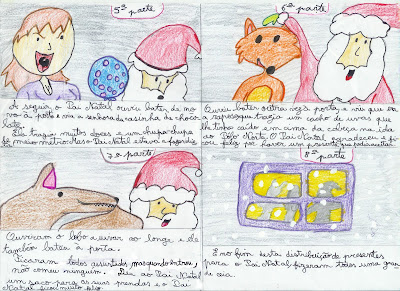 5ª parte
A seguir, o Pai Natal ouviu bater de no-
vo à porta e viu a senhora da casinha de choco-
late.
Ela trazia muitos doces e um chupa-chupa
de meio metro. Mas o Pai Natal estava a
6ª parte
Ouviu bater outra vez à porta, e viu que era
a raposa que trazia um cacho de uvas que
lhe tinha caído em cima da cabeça na ida
ao Pólo Norte. O Pai Natal agradeceu e fi-
cou feliz por haver um presente que podia
7ª parte
Ouviram o lobo a uivar ao longe e ele
também bateu à porta.
Ficaram todos assustados, mas quando entrou,
não comeu ninguém. Deu ao Pai Natal
um saco para as suas prendas e o Pai
Natal ficou muito feliz.
8ª parte
E no fim desta distribuição de presentes
para o Pai Natal fizeram todos uma gran-
de ceia.